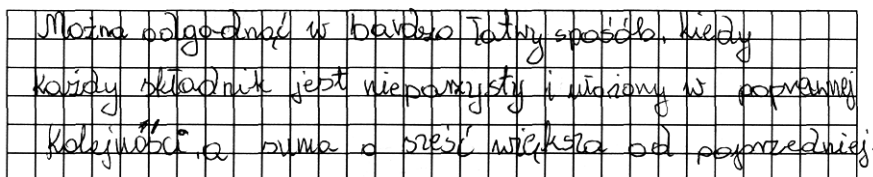 Można odgadnąć w bardzo łatwy sposób, kiedy
każdy składnik jest nieparzysty i ułożony w poprawnej
kolejności, a suma o sześć większa od poprzedniej.